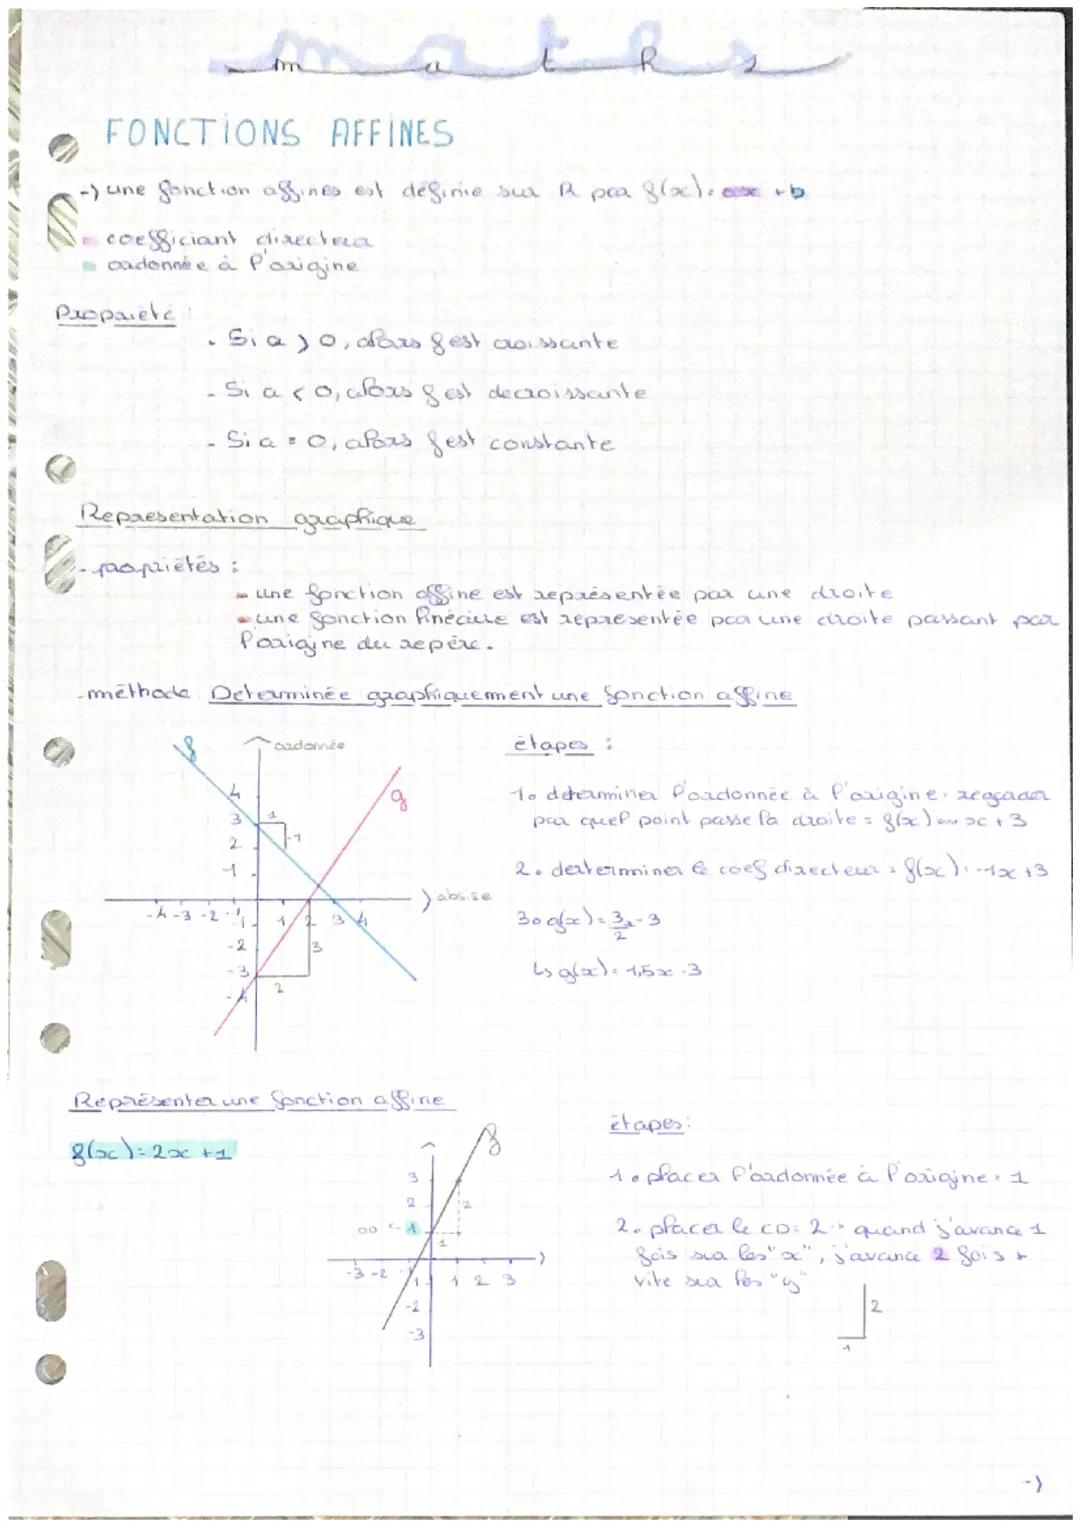 maths
FONCTIONS AFFINES
-) une fonction affines est définie sur R par f(x)= ax + b
coefficiant directeur
ordonnée à l'origine
Propriété :
. Si a > 0, alors f est croissante
- Si a < 0, alors f est decroissante
- Si a = 0, alors f est constante
Representation graphique
- propriétés :
une fonction affine est représentée par une droite
une fonction linéaire est représentée par une droite passant par
l'origine du repère.
-méthode : Determinée graphiquement une fonction affine
f
ordonnée
g
4
3
2
1
1
-1
-4 -3 -2 -1
1 2 3 4
absise
-1
-2
-3
-4
3
2
étapes :
1. determiner l'ordonnée à l'origine. regarder
par quel point passe la droite = f(x) = x + 3
2. derterminer le coef directeur = f(x) = -1x +3
3. g(x) = 3x - 3
2
↳ g(x) = 1,5x - 3
Représenter une fonction affine
f(x) = 2x + 1
f
3
2
1
oo
2
1
-3 -2 -1
1 2 3
-1
-2
-3
étapes :
1. placer l'ordonnée à l'origine = 1
2. placer le CD: 2 -> quand j'avance 1
fois sur les "x", j'avance 2 fois +
vite sur les "y"
2
1
-)